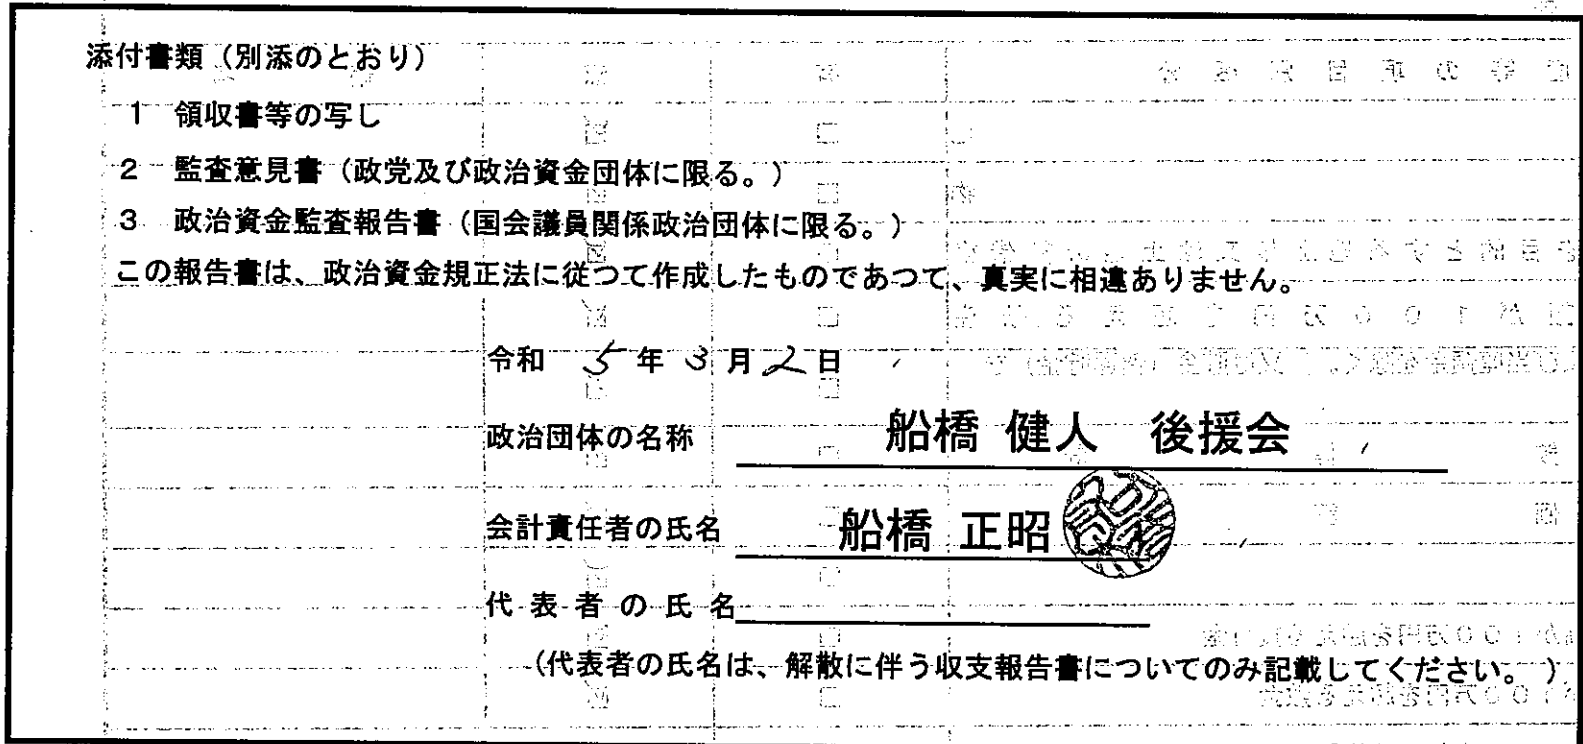 添付書類（別添のとおり）
1 領収書等の写し
2 監査意見書（政党及び政治資金団体に限る。）
3 政治資金監査報告書（国会議員関係政治団体に限る。）
この報告書は、政治資金規正法に従つて作成したものであつて、真実に相違ありません。
令和 5年 3月2日
政治団体の名称 船橋 健人 後援会
会計責任者の氏名 船橋 正昭
代表者の氏名
（代表者の氏名は、解散に伴う収支報告書についてのみ記載してください。）